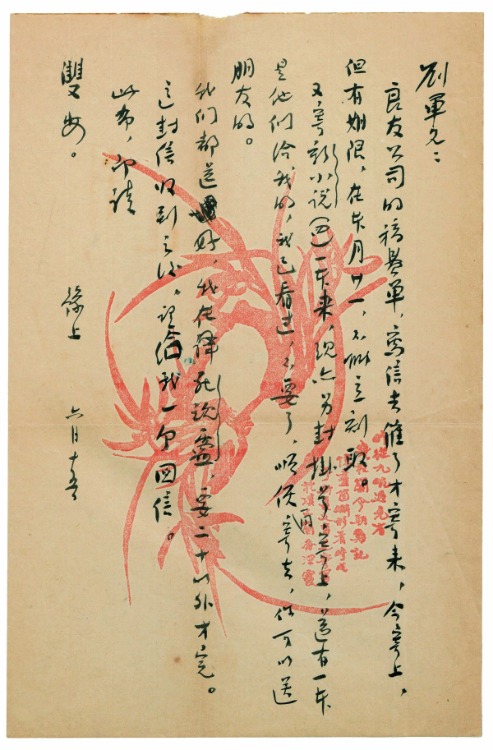 劉軍兄：
良友公司的稿費單，寫信去催了才寄來，今寄上，
但有期限，在本月廿一，不能立刻取。
又寄新小說（四）一本來，現亦另封掛号寄上，還有一本
是他们给我的，我已看过，不要了，順便寄去，你可以送
朋友的。
我们都還好，我在譯死魂靈，要二十以外才完。
這封信收到之後，望給我一个回信。
此布，即請
雙安。
豫上 六月十五